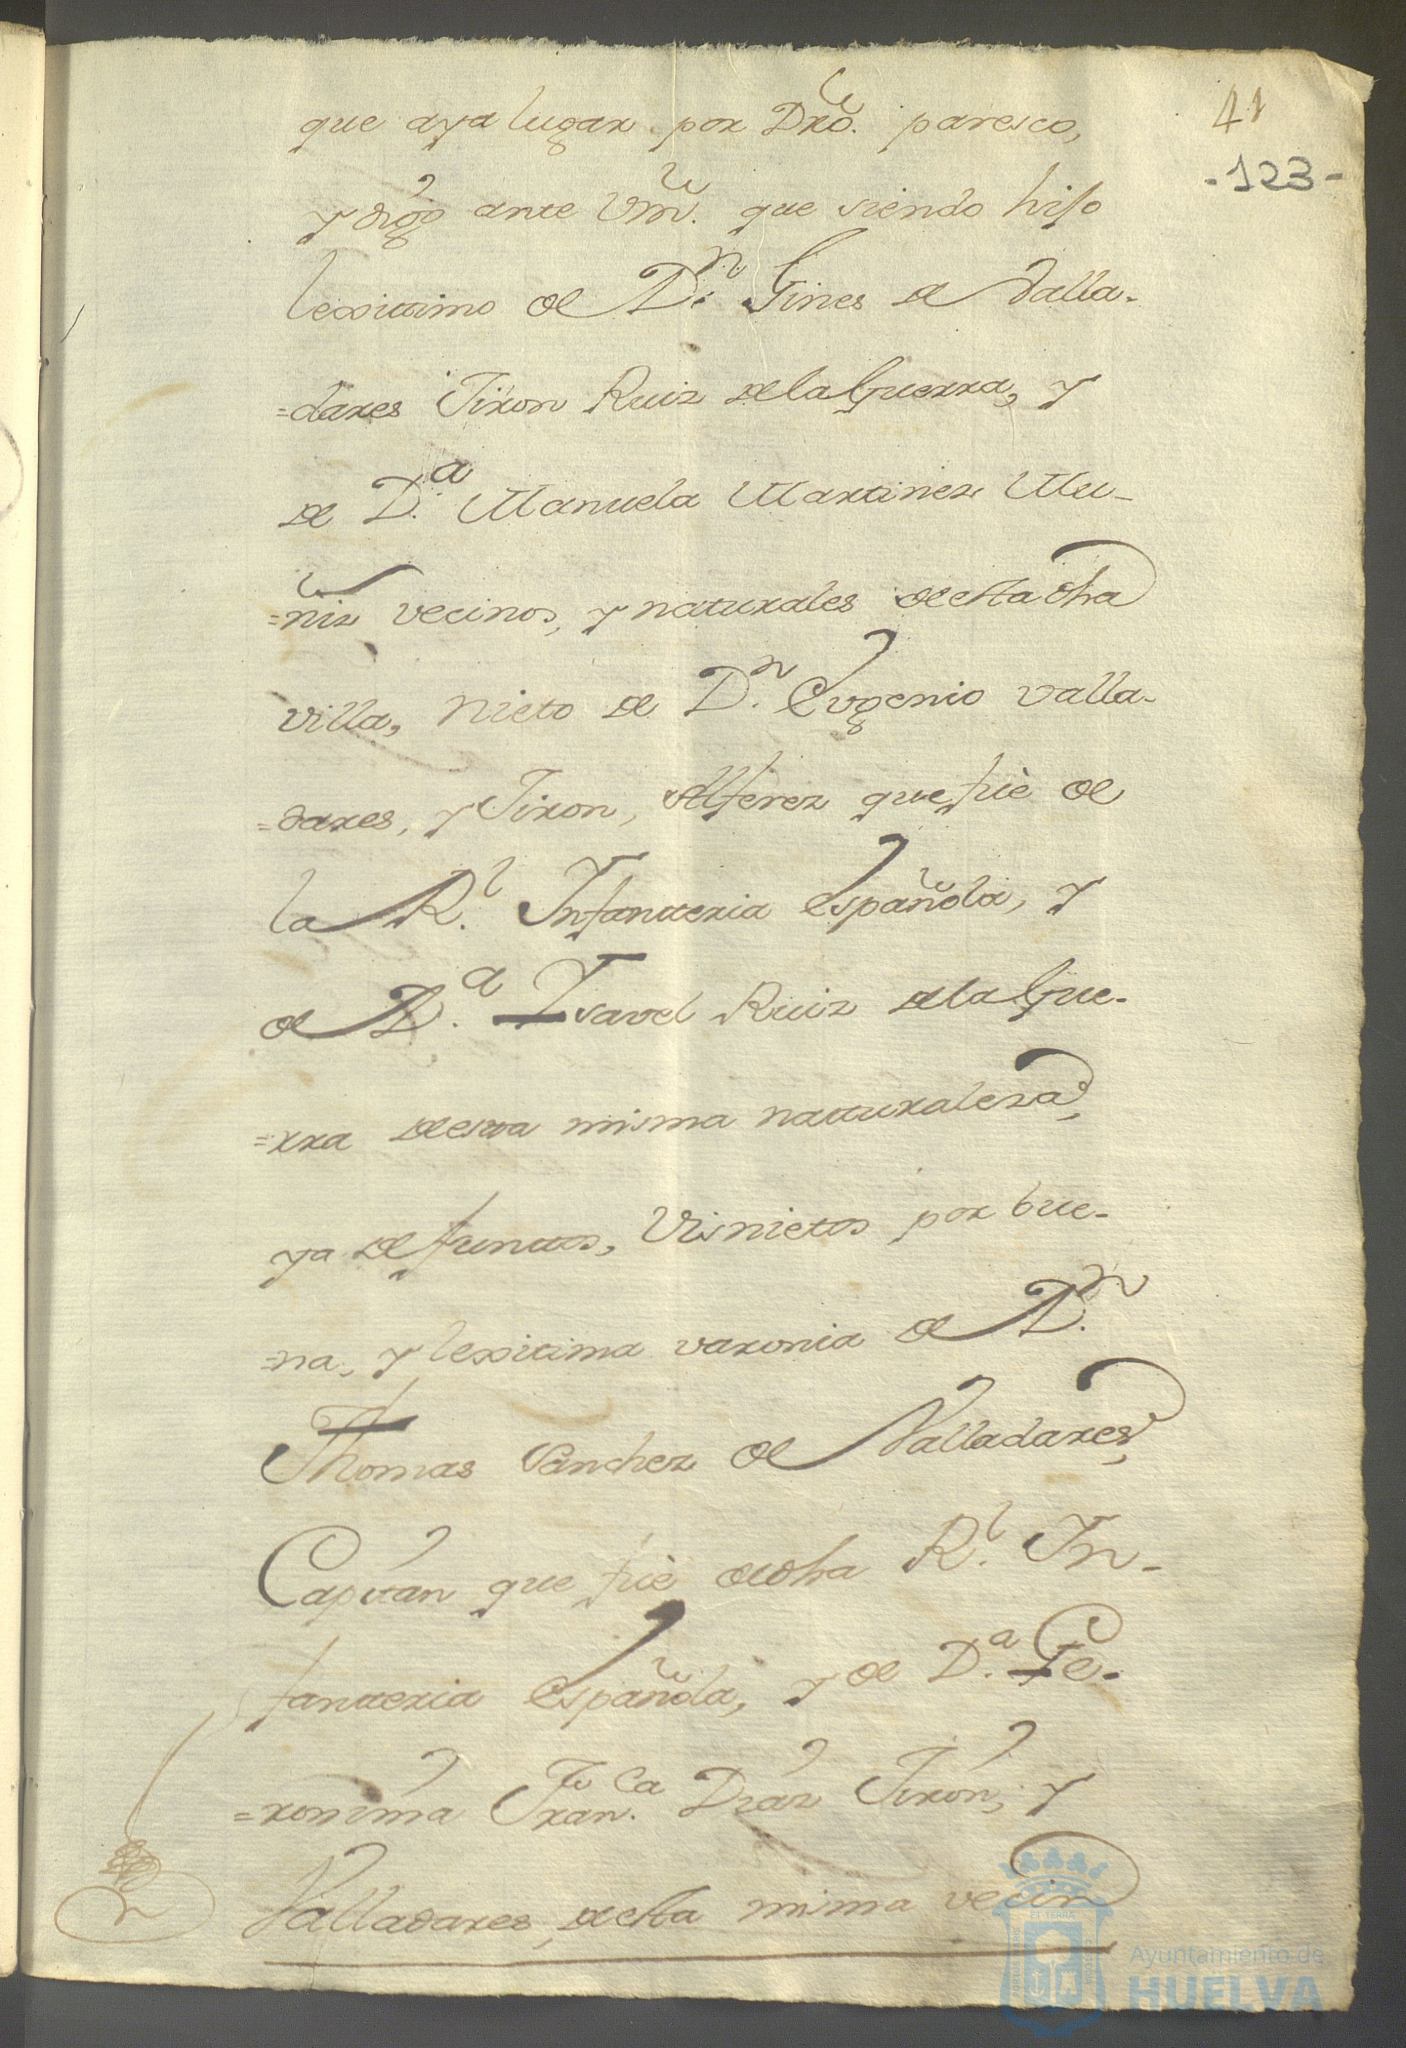 41
-123-
que aya lugar por Dro. paresco,
y digo ante Vm. que siendo hijo
lexittimo de Dn. Gines de Valla-
=dares Tiron Ruiz de la Guerra, y
de D.a Manuela Martinez Mu-
=ñiz vecinos, y naturales de esta dha
villa, Nieto de Dn. Eugenio Valla-
=dares, y Tiron, Alferez que fuè de
la Rl. Infanteria Española, y
de D.a Ysavel Ruiz de la Gue-
=rra de esta misma natturaleza,
ya defuntos, Visnietos por bue-
=na, y lexitima varonia de Dn.
Thomas Sanchez de Valladares,
Capitan que fuè de dha Rl. In-
fanteria Española, y de D.a Ge-
=ronima Fran.ca Diaz Tiron, y
Valladares, de esta misma vecin
Ayuntamiento de
HUELVA